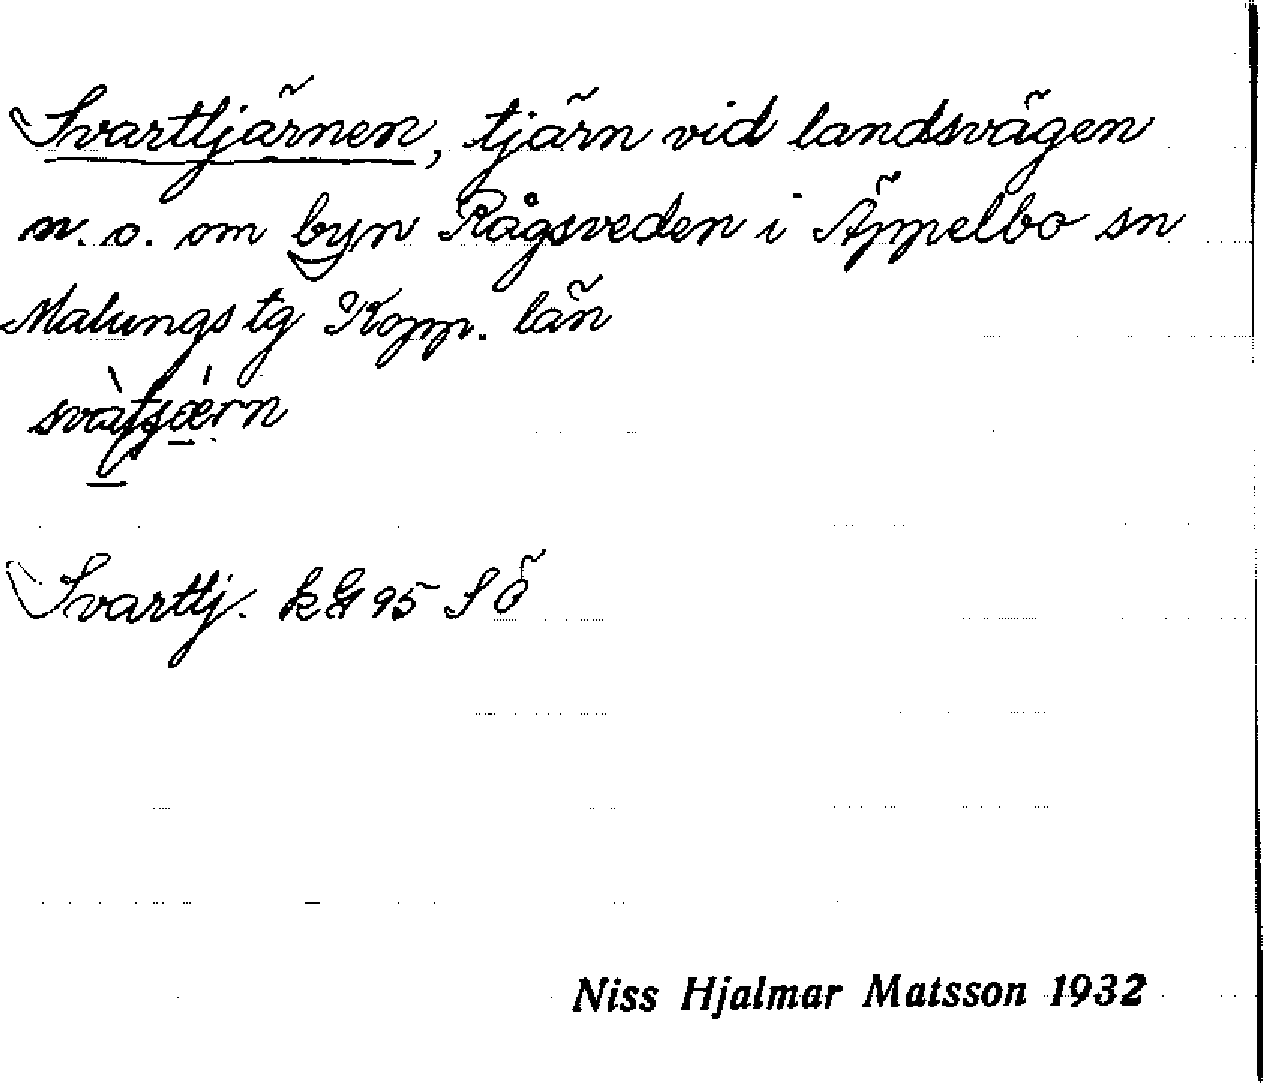 Svarttjärnen, tjärn vid landsvägen
n. o. om byn Rågsveden i Äppelbo sn
Malungs tg Kopp. län
Svarttj. kG 95 S Ö
Niss Hjalmar Matsson 1932